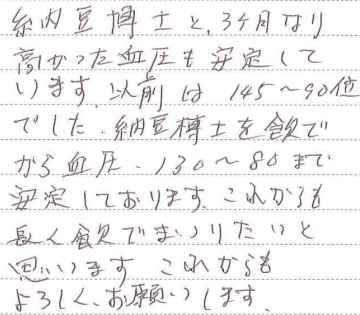 納豆博士と、3ヶ月なり
高かった血圧も安定して
います。以前は145〜90位
でした。納豆博士を飲んで
から血圧、130〜80まで
安定しております。これからも
長く飲んでまいりたいと
思います これからも
よろしく、お願いします。